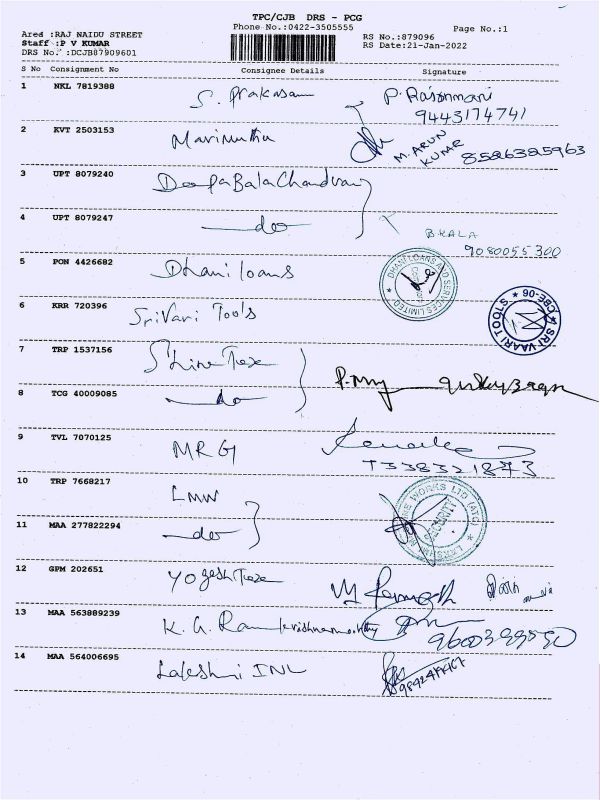 TPC/CJB DRS - PCG
Phone No.:0422-3505555
Page No.:1
Ared :RAJ NAIDU STREET
Staff :P V KUMAR
DRS No. :DCJB87909601
RS No.:879096
RS Date:21-Jan-2022
S No Consignment No Consignee Details Signature
1 NKL 7819388 S. Prakasam
9443174741
2 KVT 2503153 Marimuthu M. ARUN KUMAR 8526325963
3 UPT 8079240 Deepa Bala Chandran
4 UPT 8079247 do
BHALA
9080055300
5 PON 4426682 Dhani loans DHANI LOANS AND SERVICES LIMITED
6 KRR 720396 Srivari Tools SRI VAARI TOOLS CBE-06
7 TRP 1537156 Shine Teze
8 TCG 40009085 do
9 TVL 7070125 MRG
10 TRP 7668217 LMW
11 MAA 277822294 do
SECURITY
12 GPM 202651 Yogesh Teze
13 MAA 563889239 K. G. Ramakrishnamoorthy
14 MAA 564006695 Lakshmi INL